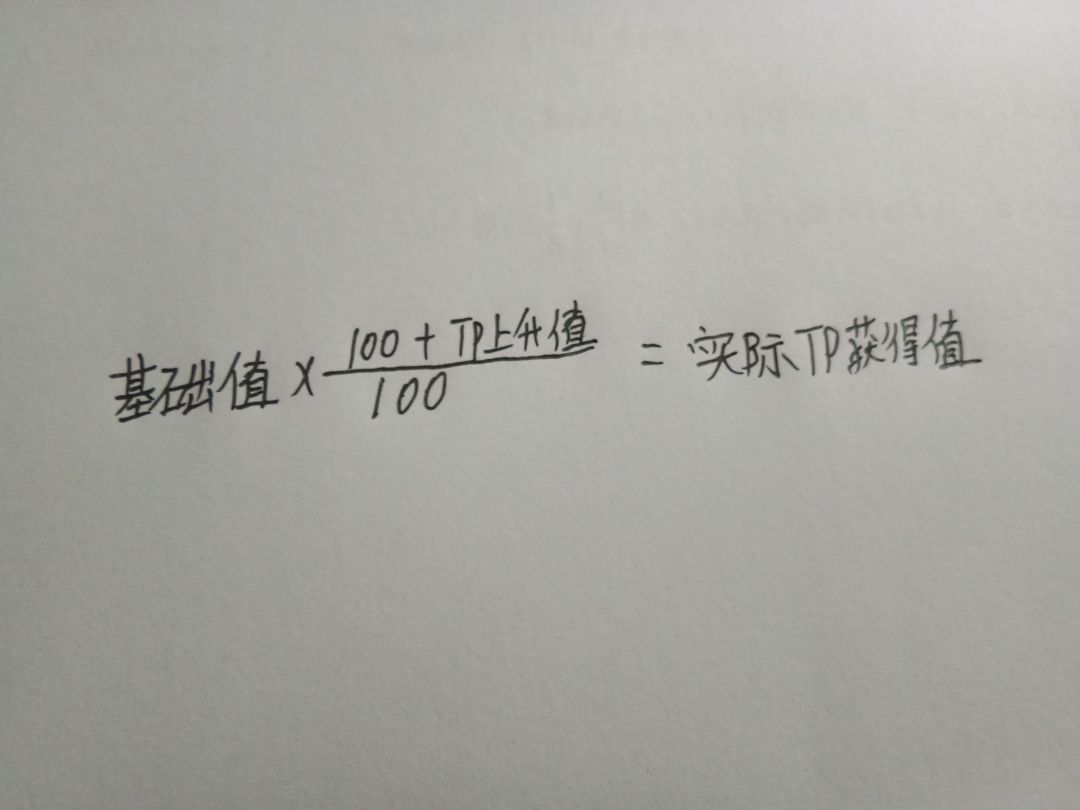 基础值 × (100 + TP上升值)/100 = 实际TP获得值